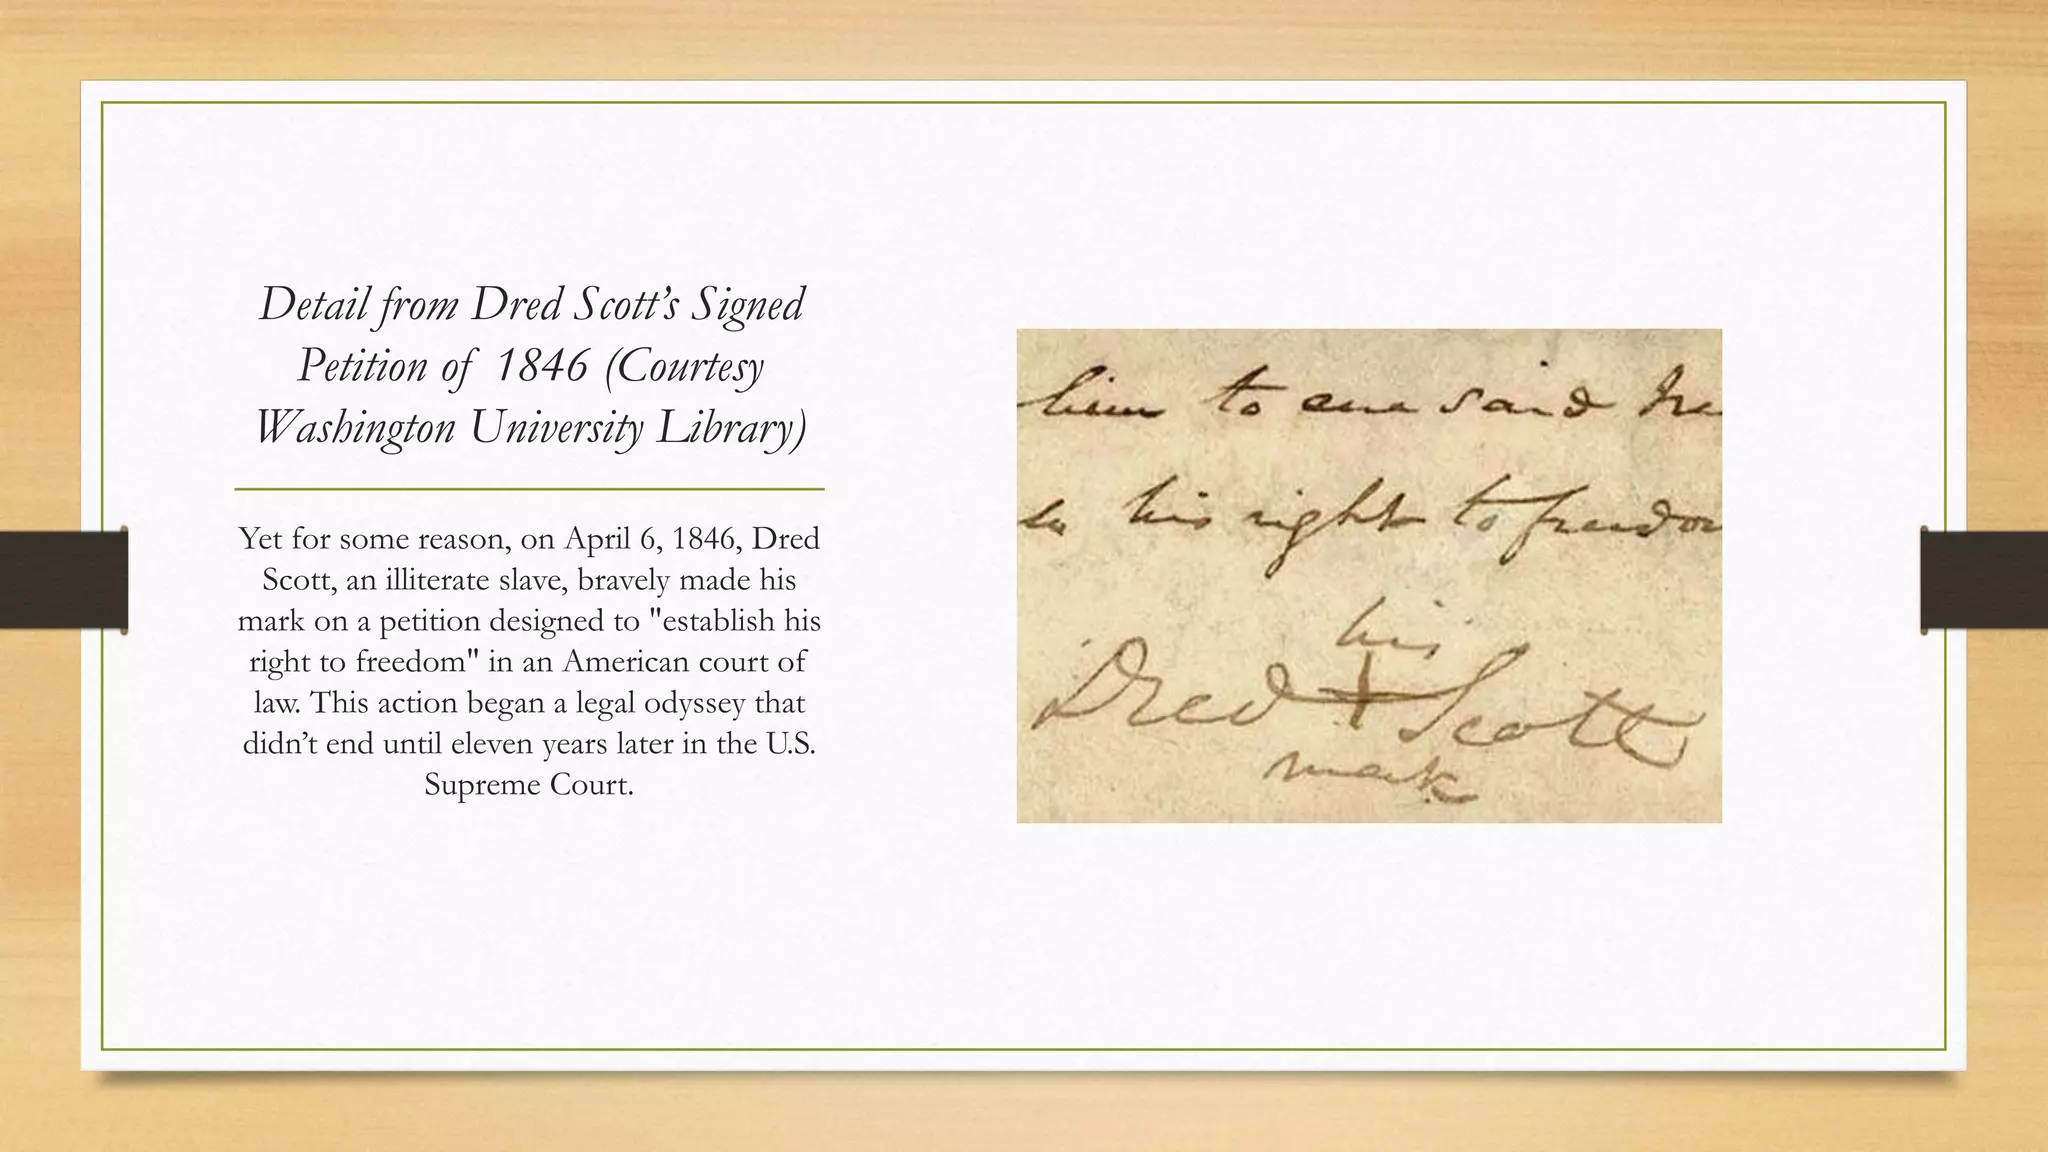 Detail from Dred Scott’s Signed
Petition of 1846 (Courtesy
Washington University Library)
Yet for some reason, on April 6, 1846, Dred
Scott, an illiterate slave, bravely made his
mark on a petition designed to "establish his
right to freedom" in an American court of
law. This action began a legal odyssey that
didn’t end until eleven years later in the U.S.
Supreme Court.
him to sue said
his right to freedom
his
Dred + Scott
mark